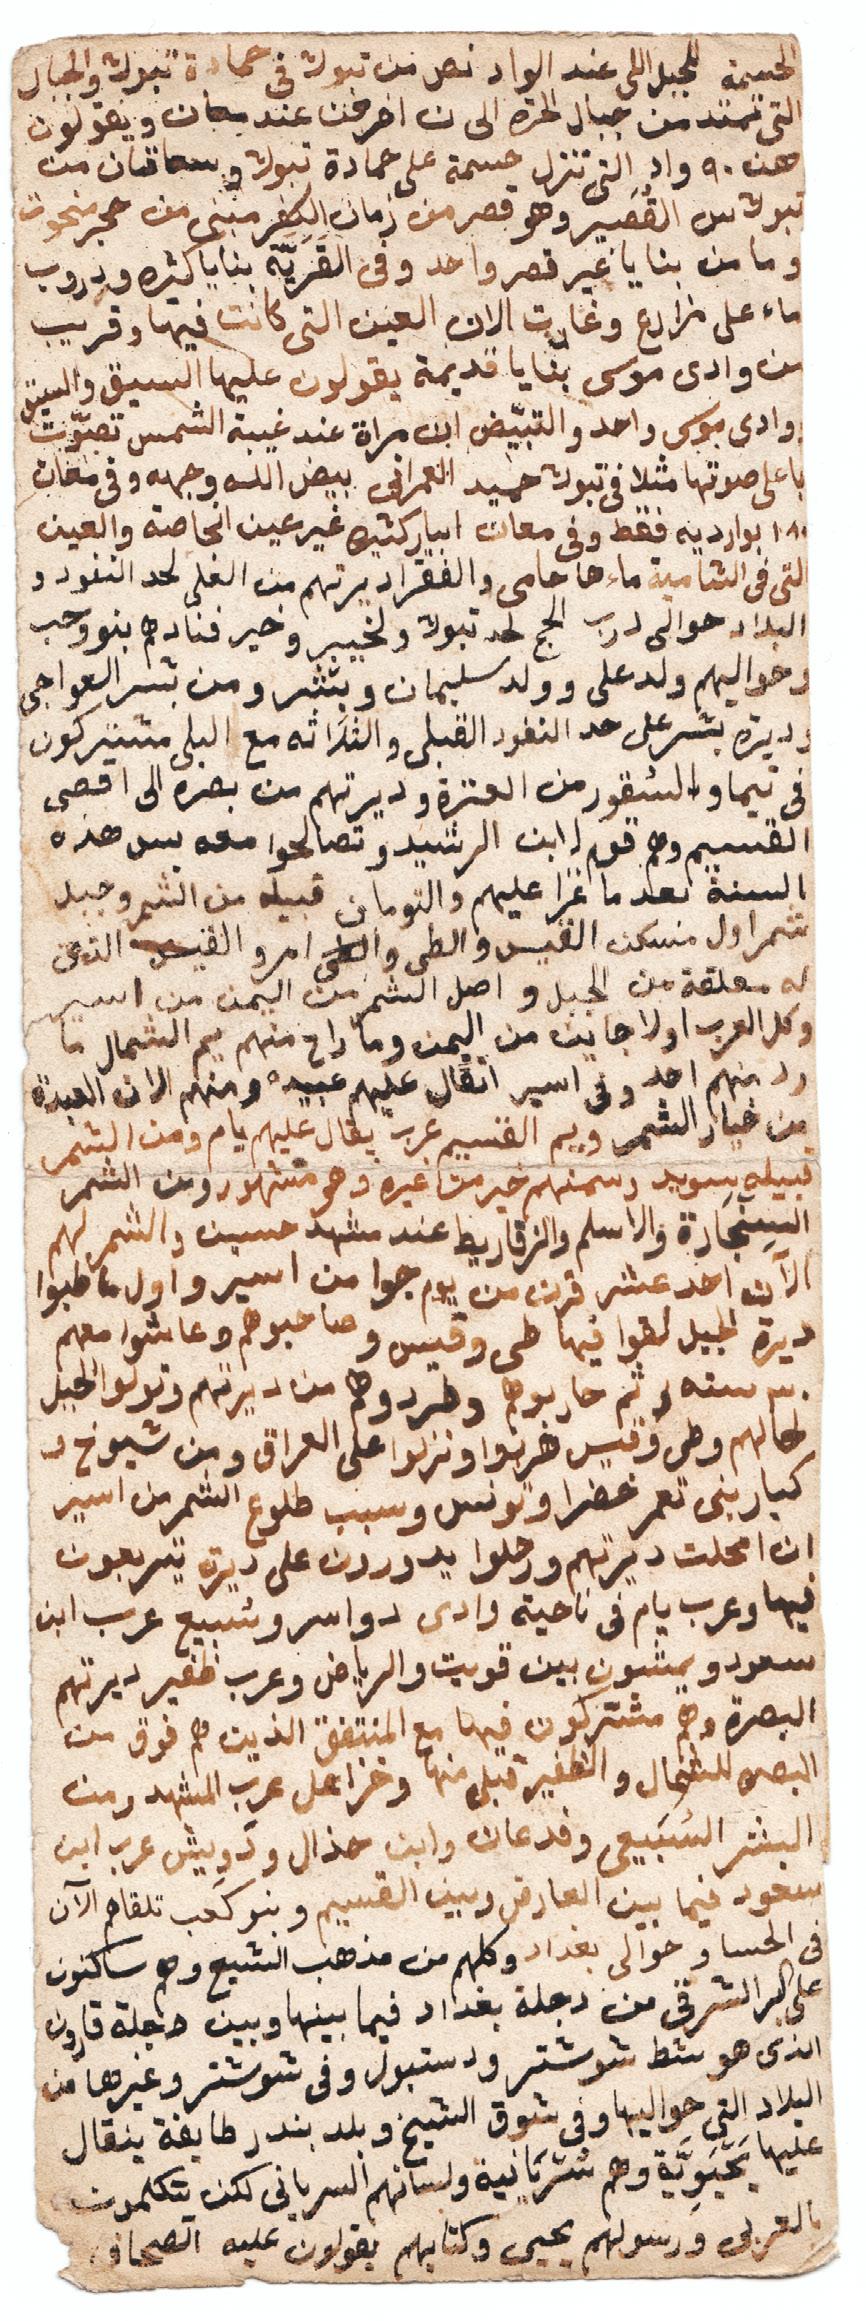 الحسمة للجبل اللى عند الواد نصل من تبوك فى حمادة تبوك والجبال
التى تمتد من جبال الحره الى ان اخرقت عند معان ويقولون
هن ٩٠ واد التى تنزل حسمة على حمادة تبوك وساعتان من
تبوك القُصَير وهو قصر من زمان الكفر مبنى من حجر منحوت
وما من بنايا غير قصر واحد وفى القَرَيَّة بنايا كثره ودروب
ماء على مزارع وغارت الان العين التى كانت فيها وقريب
من وادى موسى بنايا قديمة يقولون عليها السيق والسيق
ووادى موسى واحد والتبيّض ان مراة عند غيبة الشمس تصوّت
باعلى صوتها مثلا فى تبوك حميد العمرانى بيض الله وجهه وفى معان
١٨٠ بوارديه فقط وفى معان ابيار كثيره غير عين الخاصة والعين
التى فى الشامية ماءها حامى والفقرا ديرتهم من العلى لحد النفود و
البلاد حوالى درب الحج لحد تبوك ولخيبر وخير فنادهم بنو وهب
وحواليهم ولد على وولد سليمان وبشر ومن بشر العواجى
وديرة بشر على حد النفود القبلى والفقراثه مع البلى مشتركون
فى تيما والشقور من العنزة وديرتهم من بصره الى اقصى
القسيم وهم قوم لابن الرشيد وتصالحوا معه بس هذه
السنة بعد ما غزا عليهم والتومان قبيله من الشمر وجبل
شمر اول منسكن القيس والطى وامرو القيس الذى
له معلقة من الجبل واصل الشمر من اليمن من اسير
وكل العرب اولا جايين من اليمن وما راح منهم يم الشمال ما
رد منهم احد وفى اسير انقال عليهم عبيده ومنهم الان العبدة
من خيار الشمر ويم القسيم عرب يقال عليهم يام ومن الشمر
قبيله سويد وسمنهم خير من غيره وهو مشهور ومن الشمر
السِنجَارة والاسلم والزقاريط عند مشهد حسين والشمر لهم
الآن احد عشر قرن من يوم جوا من اسير واول ما طبوا
ديرة الجبل لقوا فيها طى وقيس وصاحبوهم وعاشوا معهم
٣٠ سنه و ثم حاربوهم وطردوهم من ديرتهم وتولوا الجبل
لحالهم وطى وقيس هربوا ونزلوا على العراق ومن شيوخ و
كبار بنى تعمر خضرا وتونس وسبب طلوع الشمر من اسير
ان امحلت ديرتهم ورحلوا يدورون على ديرة يتربعون
فيها وعرب يام فى ناحية وادى دواسر وسبيع عرب ابن
سعود ويمشون بين قويت والرياض وعرب ظفير ديرتهم
البصرة وهم مشتركون فيها مع المنتفق الذين هم فوق من
البصره للشمال والظفير قبلى منها وخزاعل عرب المشهد ومن
البشر السُبَيعى وفدعان وابن هذال ودويش عرب ابن
سعود فيما بين العارض وبين القسيم وبنو كَعب تلقاهم الآن
فى الحسا وحوالى بغداد وكلهم من مذهب الشيع وهم ساكنون
على البر الشرقى من دجلة بغداد فيما بينها وبين دجلة قارون
الذى هو شط شوشتر ودستبول وفى شوشتر وغيرها من
البلاد التى حواليها وفى شوق الشيخ وبلد بندر طايفة ينقال
عليها يَحْيَوِيَّة وهم سُرْيَانِية ولسانهم السريانى لكن يتكلمون
بالعربى ورسولهم يحيى وكتابهم يقولون عليه الصحاف